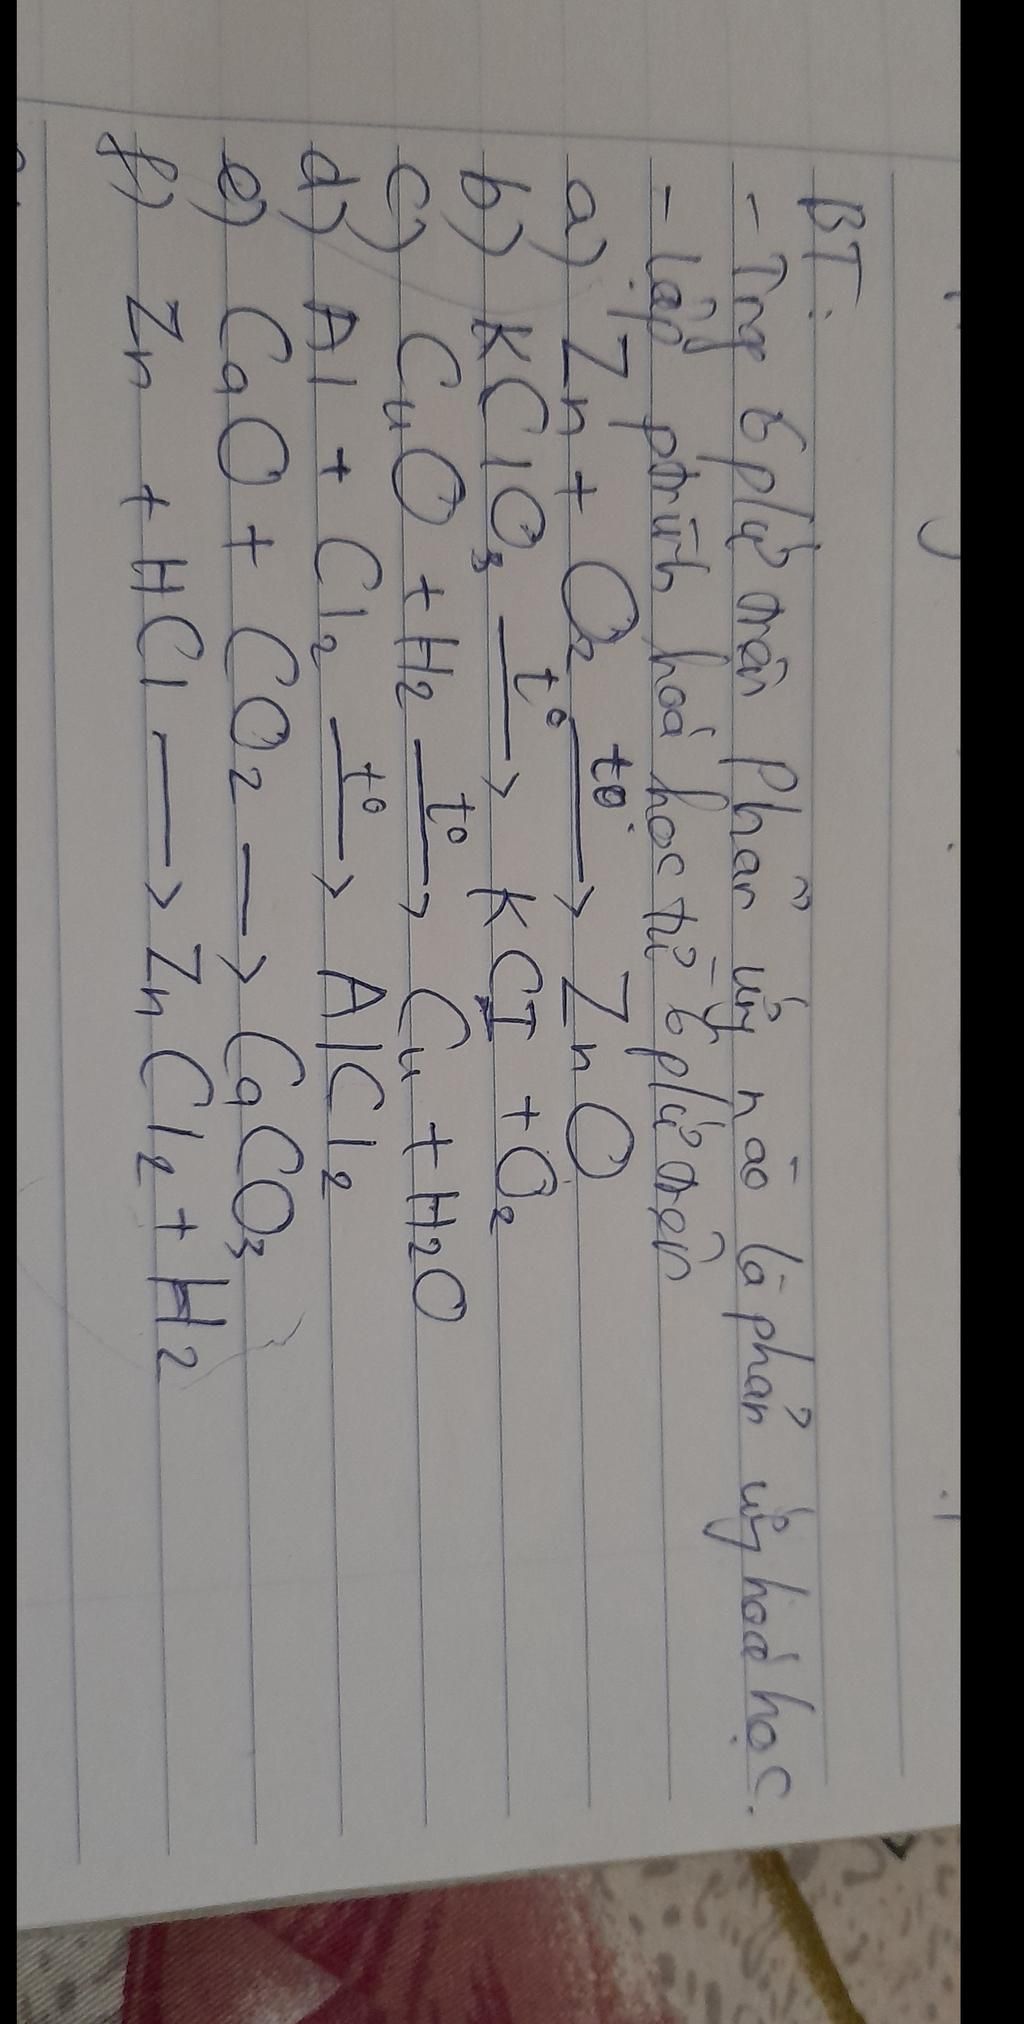 BT:
- Trg 6 pư trên phản ứng nào là phản ứng hoá học.
- lập ptrình hoá học từ 6 pư trên
a) Zn + O₂ —t°→ ZnO
b) KClO₃ —t°→ KCl + O₂
c) CuO + H₂ —t°→ Cu + H₂O
d) Al + Cl₂ —t°→ AlCl₂
e) CaO + CO₂ → CaCO₃
f) Zn + HCl → ZnCl₂ + H₂